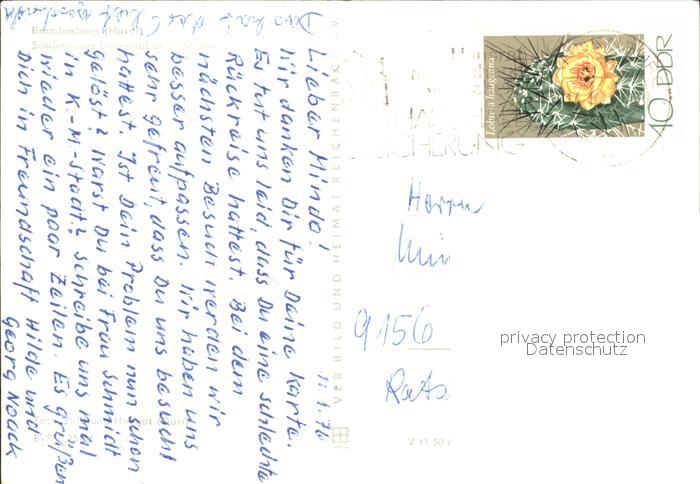 Brandenburg (Havel)
Das hat der
11.1.76
Lieber Mindo!
Wir danken Dir für Deine Karte.
Es tut uns leid, dass Du eine schlechte
Rückreise hattest. Bei dem
nächsten Besuch werden wir
besser aufpassen. Wir haben uns
sehr gefreut, dass Du uns besucht
hattest. Ist Dein Problem nun schon
gelöst? Warst Du bei Frau Schmidt
in K.-M.-Stadt? Schreibe uns mal
wieder ein paar Zeilen. Es grüßen
Dich in Freundschaft Hilde und
Georg Noack
VEB BILD UND HEIMAT REICHENBACH I. V.
V 11 50
Lobivia haageana
10 DDR
Herrn
9156
Rats
privacy protection
Datenschutz